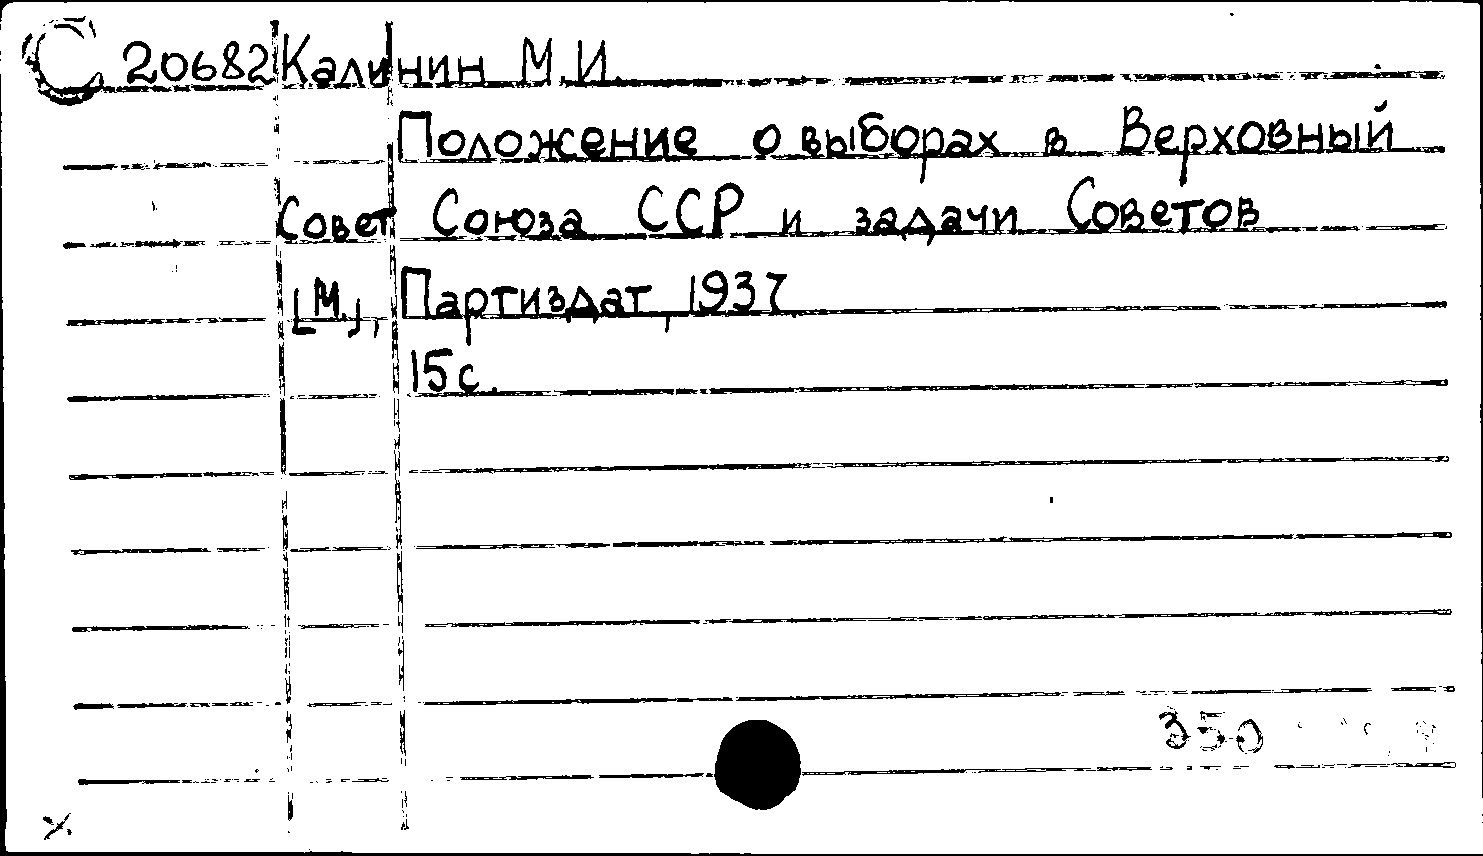 С 20682 Калинин М.И.
Положение о выборах в Верховный
Совет Союза ССР и задачи Советов
[М.], Партиздат, 1937
15 с.
350